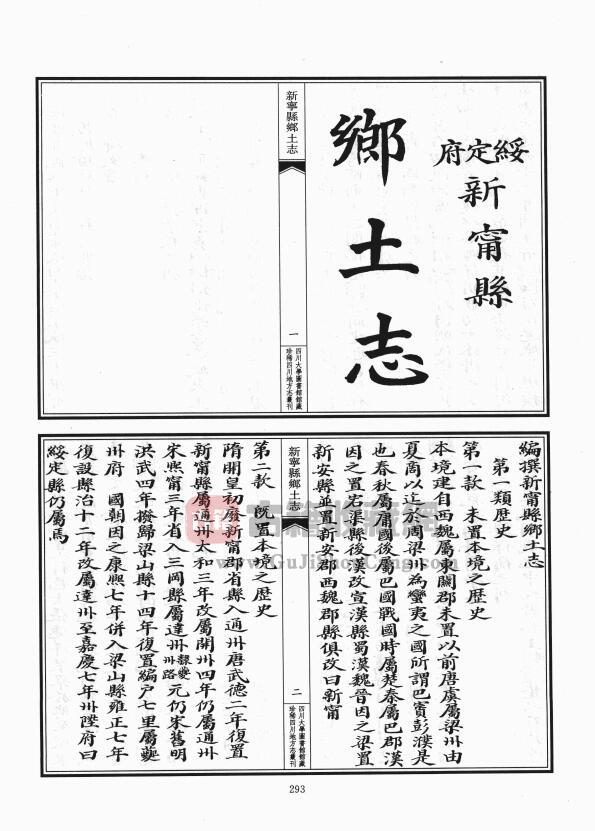 綏定府
新甯縣
鄉土志
新寧縣鄉土志
一
四川大學圖書館館藏
珍稀四川地方志叢刊
編撰新甯縣鄉土志
第一類歷史
第一款 未置本境之歷史
本境建自西魏屬東關郡未置以前唐虞屬梁州由
夏商以迄於周梁州為蠻夷之國所謂巴賨彭濮是
也春秋屬庸國後屬巴國戰國時屬楚秦屬巴郡漢
因之置宕渠縣後漢改宣漢縣蜀漢魏晉因之梁置
新安縣並置新安郡西魏郡縣俱改曰新甯
新寧縣鄉土志
二
四川大學圖書館館藏
珍稀四川地方志叢刊
第二款 既置本境之歷史
隋開皇初廢新甯郡省縣入通州唐武德二年復置
新甯縣屬通州太和三年改屬開州四年仍屬通州
宋熙甯三年省入三岡縣屬達州夔州路元仍宋舊明
洪武四年撥歸梁山縣十四年復置編户七里屬夔
州府 國朝因之康熙七年併入梁山縣雍正七年
復設縣治十二年改屬達州至嘉慶七年州陞府曰
綏定縣仍屬焉
古籍收藏網
www.GuJiShouCang.com
293